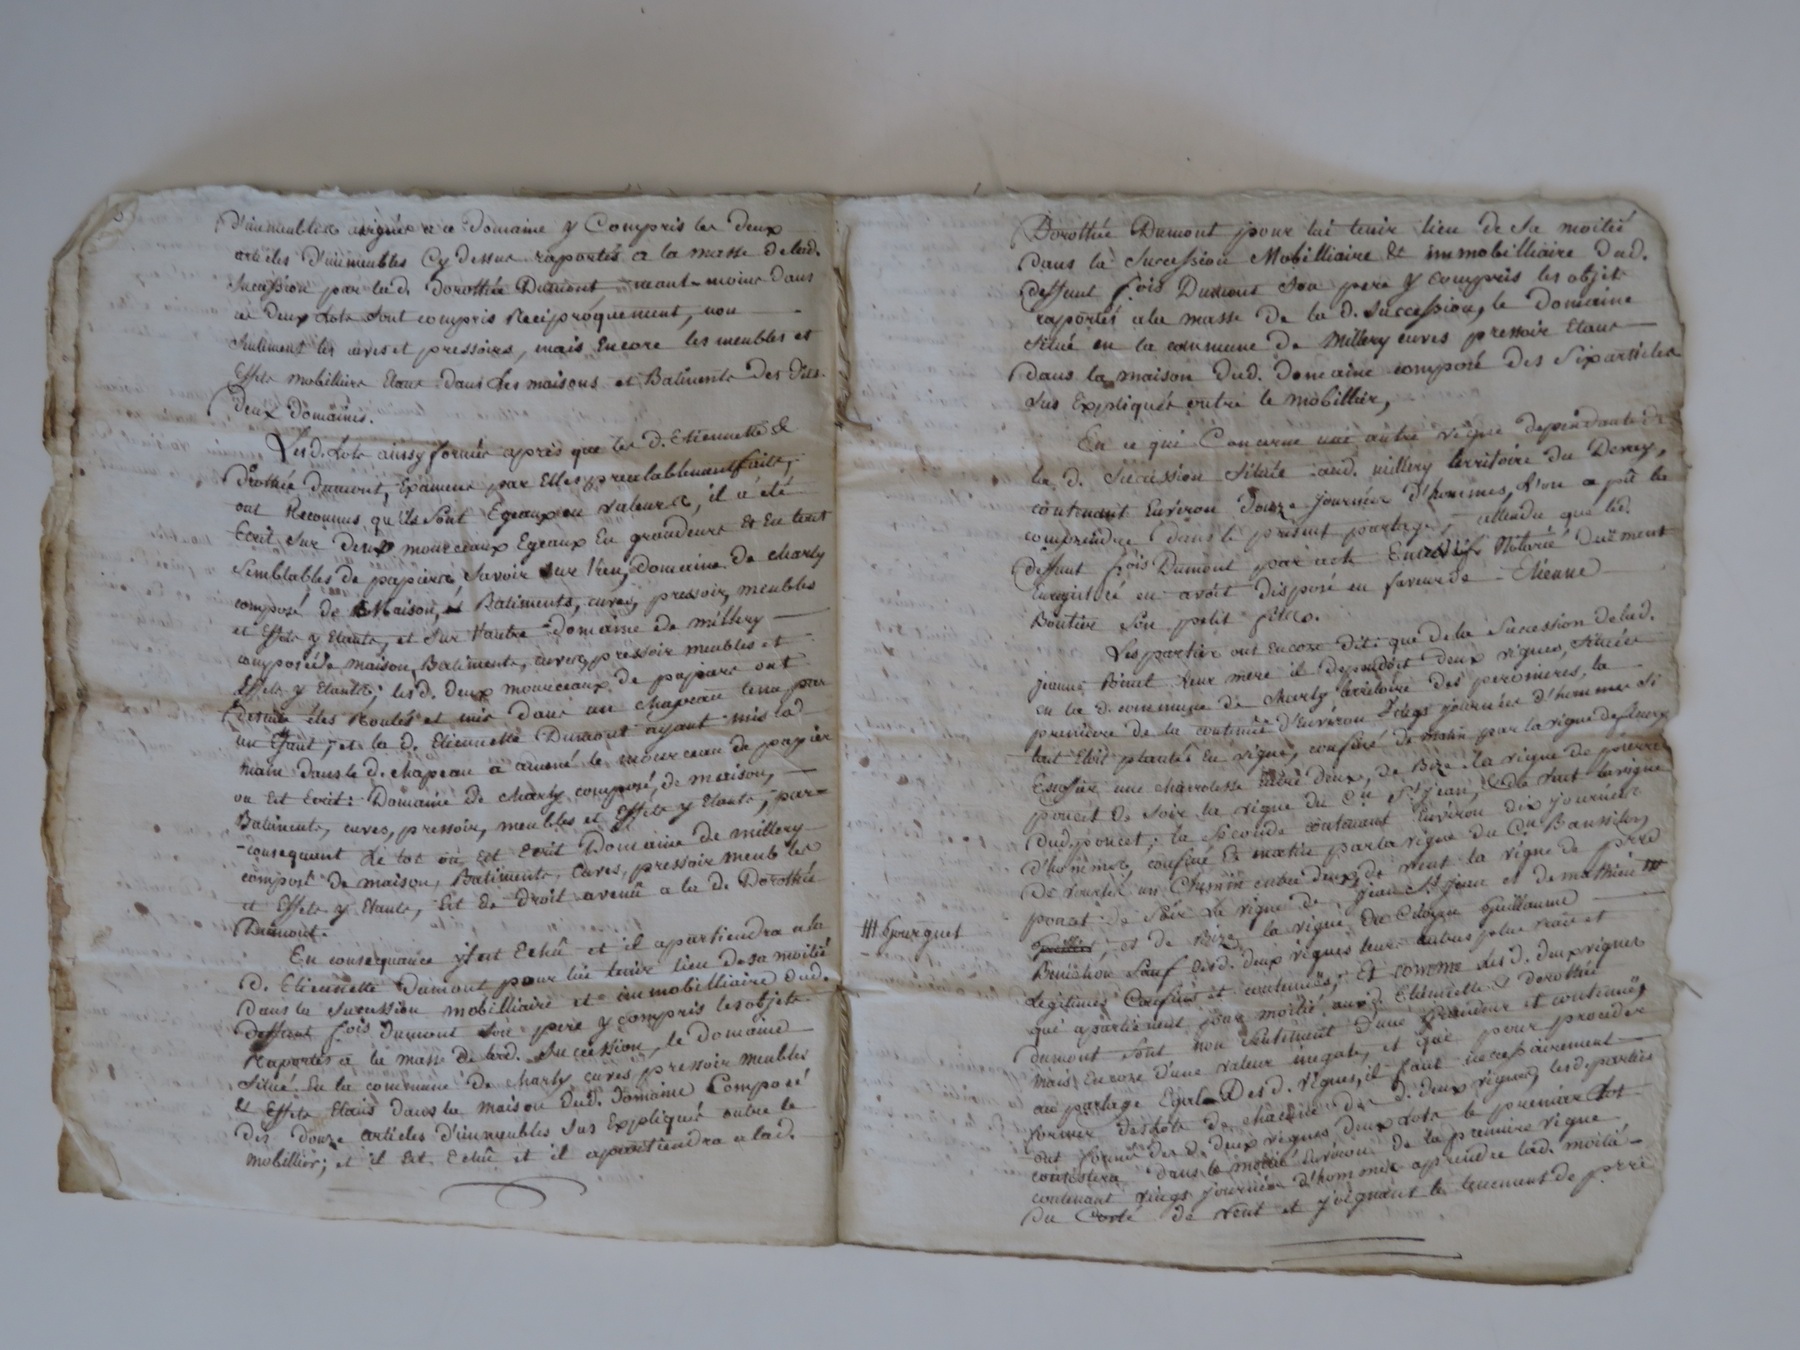 D'immeubles assignés a ce Domaine y Compris les deux
articles d'immeubles Cy dessus raportés a la masse delad.
succession par lad. dorothée Dumont, neant-moins dans
ces deux Lots sont compris Réciproquement, non
seulement les cuves et pressoirs, mais Encore les meubles et
Effets mobiliers Etans dans les maisons et Batiments des dits
Deux Domaines.
Lesd. Lots ainsy formés après que les d. Etiennette &
Dorothée Dumont, Examens par Elles préalablement faits,
ont Reconnus qu'ils sont Egeaux en valeurs, il a été
Ecrit sur deux mourceaux Egeaux En grandeurs Et En tout
semblables de papiers Savoir sur l'un, domaine de charly
composé de Maison, Batiments, cuves, pressoir, meubles
et Effets y Etants, et sur l'autre domaine de millery
composé de maison, Batiments, cuves, pressoir meubles et
Effets y Etants; les d. deux mourceaux de papiers ont
Ensuite étés Roulés et mis dans un chapeau tenu par
un Efant, et la d. Etiennette Dumont ayant mis lad.
main dans le d. chapeau a amené le mourceau de papier
ou Est Ecrit: Domaine de charly composé, de maison,
Batiments, cuves, pressoir, meubles et Effets y Etants, par=
-consequent Le lot où Est Ecrit Domaine de millery
composé de maison, Batiments, Cuves, pressoir meubles
et Effets y Etants, Est de droit avenû a la d. Dorothée
Dumont.
En consequance il est Echû et il apartiendra a la
d. Etiennette Dumont pour lui tenir lieu de sa moitié
dans la succession mobilliaire et immobilliaire dud.
deffunt fçois Dumont son pere y compris les objets
Raportés a la masse de lad. succession, le domaine
situé En la commune de charly cuves pressoir meubles
& Effets Etans dans la maison dud. domaine Composé
des douze articles d'immeubles sus Expliqués outre le
mobillier; et il Est Echû et il apartiendra a lad.
Dorothée Dumont pour lui tenir lieu de Sa moitié
dans la succession Mobilliaire & immobilliaire dud.
deffunt fçois Dumont son pere y compris les objets
raportés a la masse de la d. succession, le domaine
situé en la commune de Millery cuves pressoir Etans
dans la maison dud. domaine composé des six articles
sus Expliqués outre le mobillier,
En ce qui Concerne une autre vigne dependante de
la d. succession située aud. millery territoire du
contenant Environ douze journées d'hommes, l'on a pû la
comprendre dans le présent partage, attendu que led.
deffunt fçois Dumont par acte Notarié duëment
Enregistré en avoit disposé en faveur de Etienne
Boutier son petit fils.
Les parties ont encore dit: que de la succession delad.
jeanne Poncet leur mere il dependoit deux vignes, située
en la d. commune de charly territoire des la
premiere de la contenue d'Environ vingt journées d'hommes si
tout Etoit planté En vigne, confiné de matin par la vigne de
une charolette entre deux, de Bize la vigne de pierre
poncet de soir la vigne du C.en St jean, & de vent la vigne
dud. poncet; la seconde contenant Environ dix journées
d'hommes, confiné de matin par la vigne du C.en
un Chemin entre deux, de vent la vigne de pierre
poncet de soir la vigne de jean St jean et de mathieu ///
/// Gourguet
et de Bize la vigne du Citoyen Guillaume
sauf desd. deux vignes leurs autres plus vrais et
Legitimes Confins et contenues; Et comme Les d. deux vignes
qui apartienent pour moitié auxd. Etiennette & dorothée
dumont sont non seulement d'une grandeur et contenuë,
mais Encore d'une valeur inegale, et que pour proceder
au partage Egal Des d. vignes, il faut necessairement
former des lots de chacune des d. deux vignes, les d. parties
ont formés des d. deux vignes deux Lots le premier Lot
consistera dans la moitié Environ de la premiere vigne
contenant vingt journées d'hommes aprendre lad. moitié
du Coté de vent et joignant le tenement de pierre